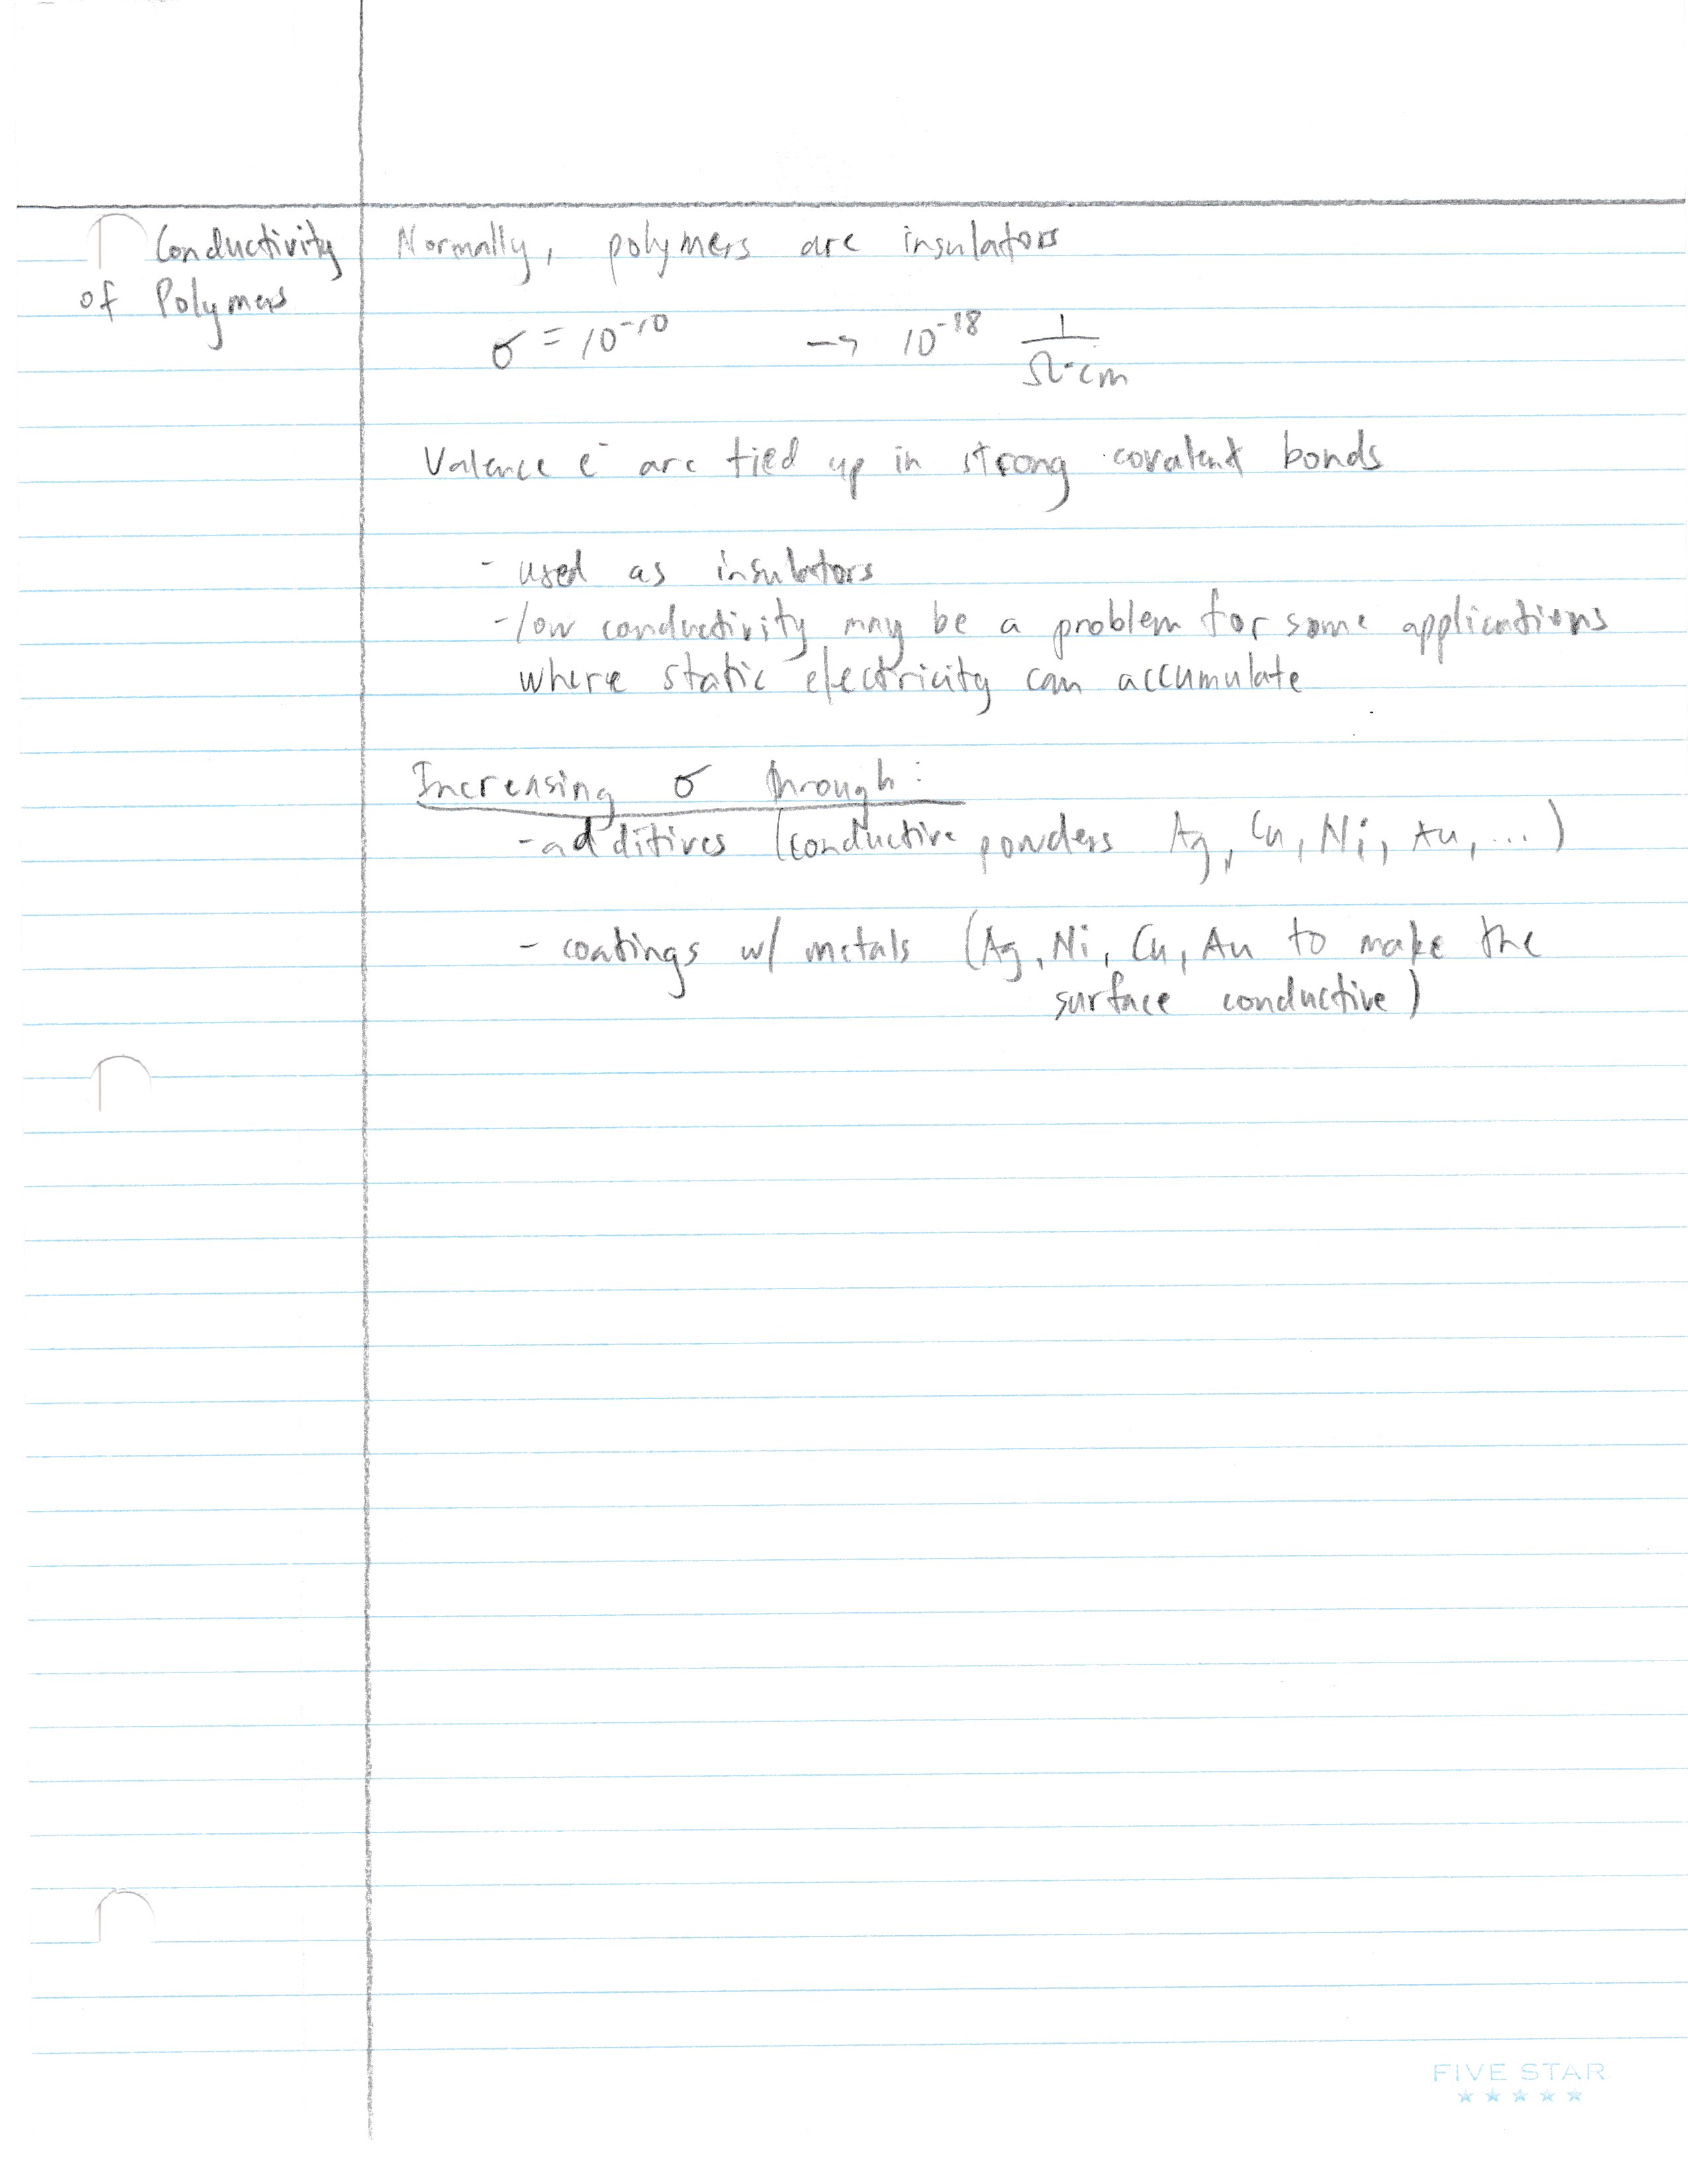 Conductivity
of Polymers
Normally, polymers are insulators
σ = 10⁻¹⁰ → 10⁻¹⁸ 1/Ω·cm
Valence e⁻ are tied up in strong covalent bonds
- used as insulators
- low conductivity may be a problem for some applications
where static electricity can accumulate
Increasing σ through:
- additives (conductive powders Ag, Cu, Ni, Au, ...)
- coatings w/ metals (Ag, Ni, Cu, Au to make the
surface conductive)
FIVE STAR